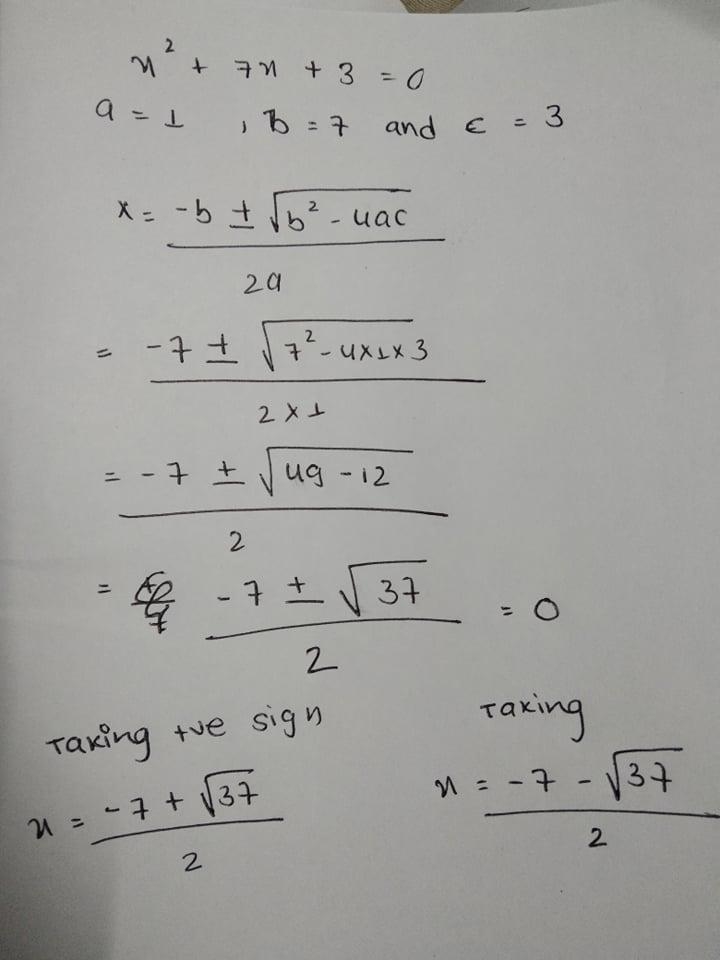 x² + 7x + 3 = 0
a = 1 , b = 7 and c = 3
x = -b ± √b² - 4ac
2a
= -7 ± √7² - 4×1×3
2 × 1
= -7 ± √49 - 12
2
= -7 ± √37 = 0
2
Taking +ve sign Taking
x = -7 + √37 x = -7 - √37
2 2